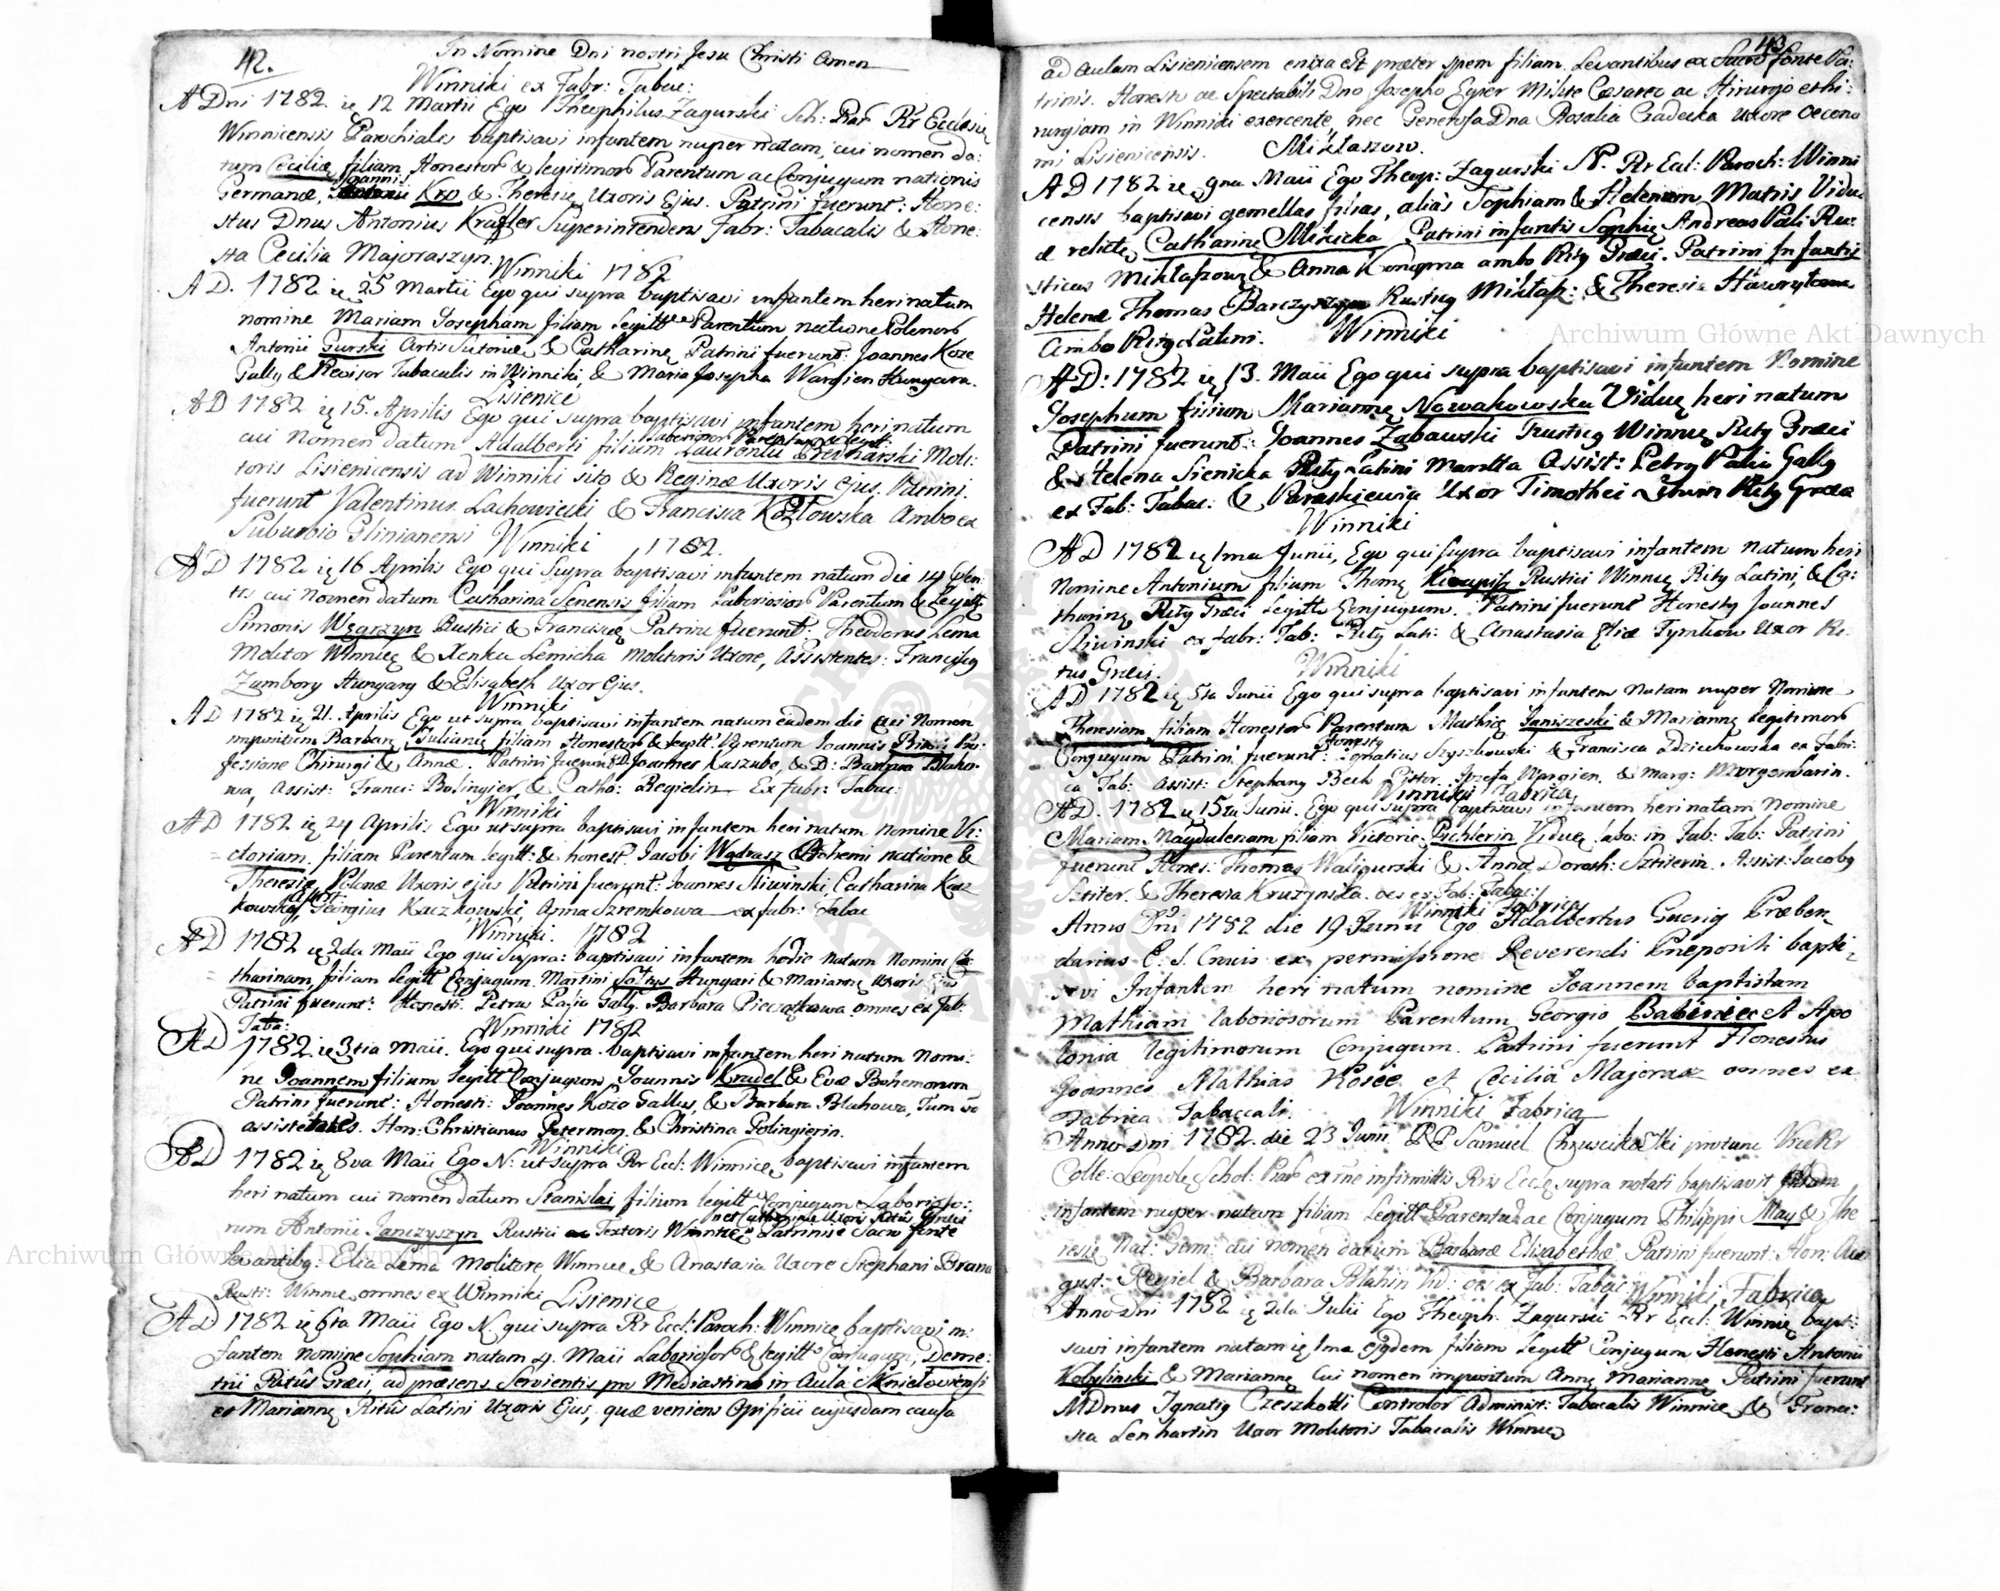 42.
In Nomine Dni nostri Jesu Christi Amen
Winniki ex Fabr: Tabac:
A Dni 1782 ię 12 Martii Ego Theophilus Zagurski Sch: Piar Rr Ecclesię
Winnicensis Parochialis baptisavi infantem nuper natam, cui nomen da:
tum Ceciliæ filiam Honestor & legitimor Parentum ac Conjugum nationis
Joannis
Germanæ, Kro & Theresiæ Uxoris Ejus. Patrini fuerunt: Hone:
stus Dnus Antonius Superintendens Fabr: Tabacalis & Hone:
sta Cecilia Majoraszyn.
Winniki 1782
A D. 1782 ię 25 Martii Ego qui supra baptisavi infantem heri natum
nomine Mariam Josepham filiam Legitt Parentum natione Polonor
Antonii Gurski Artis Sutoriæ & Catharinę Patrini fuerunt: Joannes Koze
Gally & Revisor Tabacalis in Winniki, & Maria Josepha Wargien Hungara.
Lisienice
A D 1782 ię 15. Aprilis Ego qui supra baptisavi infantem heri natum
cui Nomen datum Adalberti filium Laurentii Bednarski Moli:
toris Lisienicensis ad Winniki sito & Reginæ Uxoris ejus. Patrini
fuerunt Valentinus Lachowiecki & Francisca Kozlowska Ambo ex
Suburbio Glinianensi
Winniki 1782.
A D 1782 ię 16 Aprilis Ego qui supra baptisavi infantem natum die 14
tis cui Nomen datum Catharina Senensis filiam Laboriosor Parentum & Legitt
Simonis Węgrzyn Rustici & Franciscę Patrini fuerunt: Theodorus Lema
Molitor Winnicę & Xenka Lemicha Molitoris Uxore, Assistentes: Franciscy
Zambory Hungary & Elisabeth Uxor Ejus.
Winniki
A D 1782 ię 21. Aprilis Ego ut supra baptisavi infantem natum eadem die cui Nomen
impositum Barbarę Julianę filiam Honestor & legitt Parentum Joannis
fessione Chirurgi & Annæ. Patrini fuerunt D Joannes Kaszube, & D: Barbara Blaho:
wa, Assist: Franc: Bolingier, & Catha: Regielin Ex Fabr: Tabac:
Winniki
A D 1782 ię 24 Aprilis Ego ut supra baptisavi infantem heri natum nomine Vi:
ctoriam filiam Parentum legitt: & honest Jacobi Wądrasz Bohemi natione &
Theresię Polonæ Uxoris ejus Patrini fuerunt: Joannes Sliwinski Catharina Kacz
kowska, Georgius Kaczkowski, Anna Szremkowa ex Fabr: Tabac
Winniki. 1782
A D 1782 ię 2da Maii Ego qui supra: baptisavi infantem hodie natum Nomine Ca
tharinam, filiam Legitt Conjugum Martini Hungari & Mariannę Uxoris Ejus
Patrini fuerunt: Honesti: Petrus Pazia Gally. Barbara omnes ex Fab.
Taba:
Winniki 1782
A D 1782 ię 3tia Maii. Ego qui supra baptisavi infantem heri natum Nomi:
ne Joannem filium Legitt Conjugum Joannis Kradel & Evæ Bohemorum
Patrini fuerunt: Honesti: Joannes Kozo Gallus, & Barbara Blahowa, Tum
assistentes. Hon: Christianus Peterman & Christina Polingierin.
Winniki
A D 1782 ię 8va Maii Ego N: ut supra Rr Eccl: Winnicę baptisavi infantem
heri natum cui nomen datum Stanislai filium legitt Conjugum Laborioso:
nec Catharinæ Uxoris Ritûs Græci
rum Antonii Janczyszyn Rustici ac Textoris Winnicę Patrinis e Sacro fonte
Levantibg: Elia Lema Molitore Winnicę & Anastasia Uxore Stephani Brana
Rusti: Winnicę omnes ex Winniki
Lisienice
A D 1782 ię 6ta Maii Ego N. qui supra Rr Eccl: Paroch: Winnicę baptisavi in:
fantem nomine Sophiam natam 4. Maii Laborioso & legitt Conjugum, Deme:
trii Ritûs Græci, ad præsens Servientis pro Mediastino in Aula
et Mariannę Ritûs Latini Uxoris Ejus, quæ veniens Opificii cujusdam causa
43
ad Aulam Lisieniensem enixa est præter spem filiam. Levantibus ex Sacro fonte Pa:
trinis. Honesto ac Spectabili Dno Josepho Egier Milite Cæsareo ac Hirurgo et hi:
rurgiam in Winniki exercente, nec Generosa Dna Rosalia Czadecka Uxore Oecono
mi Lisienicensis.
Miklaszow.
A D 1782 ię 9na Maii Ego Theop: Zagurski S.P. Rr Ecl: Paroch: Winni
censis baptisavi gemellas filias, alias Sophiam & Helenam, Matris Vidu
æ relictę Catharinę Mikicka Patrini infantis Sophię Andreas Pali Ru:
sticus Miklaszowę & Anna ambo Rity Græci. Patrini Infantis
Helenæ Thomas Barczyszyn Rusticg Miklasz: & Theresia
Ambo Rity Latini.
Winniki
A D: 1782 ię 13. Maii Ego qui supra baptisavi infantem Nomine
Josephum filium Mariannę Nowakowska Viduę heri natum
Patrini fuerunt: Joannes Zabawski Rusticg Winnicę Rity Græci
& Helena Sienicka Rity Latini Assist: Petry Gally
ex Fab: Tabac: & Paraskiewia Uxor Timothei Rity Græca
Winniki
A D 1782 ię 1ma Junii, Ego qui supra baptisavi infantem natum heri
nomine Antonium filium Thomę Rustici Winnicę Rity Latini, & Ca:
tharinę Rity Græci Legitt Conjugum. Patrini fuerunt Honesty Joannes
Sliwinski ex Fabr: Tab: Rity Lati: & Anastasia Eliæ Tymkow Uxor Ri:
tus Græci.
Winniki
A D 1782 ię 5ta Junii Ego qui supra baptisavi infantem natam nuper Nomine
Theresiam filiam Honestor Parentum Mathiæ Janiszeski & Mariannę legitimor
Honesty
Conjugum Patrini fuerunt: Ignatius Szyszkowski & Francisca Zdziechowska ex Fabri:
ca Tab: Assist: Stephany Bech Pistor, Josefa Wargien, & Marg:
Winniki Fabrica
A D. 1782 ię 15ta Junii. Ego qui supra baptisavi infantem heri natam Nomine
Mariam Magdalenam filiam Victorię Pichlerin Viduę labo: in Fab: Tab: Patrini
fuerunt Hones: Thomas Waligurski & Anna Doroth: Sztiterin. Assist: Jacoby
Sztiter & Theresia Kruzynska. oēs ex Fab: Tabac:
Winniki Fabrica
Anno Dni 1782 die 19 Junii Ego Adalbertus Gueriq Præben
darius C: S. Crucis ex permissione Reverendi Præpositi bapti:
savi Infantem heri natum nomine Joannem baptistam
Mathiam laboriosorum Parentum Georgio Babiniec et Apo
lonia legitimorum Conjugum. Patrini fuerunt Honestus
Joannes Mathias Kosée et Cecilia Majorasz omnes ex
Fabrica Tabaccali.
Winniki Fabrica
Anno Dni 1782. die 23 Junii RP Samuel protunc ViceRr
Colle: Leopolę Schol: Piar ex rne infirmitis Rris Ecclę supra notati baptisavit
infantem nuper natam filiam Legitt Parentũ ac Conjugum Philippi May & The
resię Nat: Germ: cui nomen datum Barbaræ Elizabethæ Patrini fuerunt: Hon: Au
gust: Regiel & Barbara Blahin Vid: oēs ex Fab: Tabac
Winniki Fabrica
Anno Dni 1782 ię 2da Julii Ego Theoph. Zagurski Rr Ecl: Winnię bapt:
savi infantem natam ię 1ma Ejqdem filiam Legitt Conjugum Honesti Antonii
Kobylinski & Mariannę Cui nomen impositum Annę Mariannę Patrini fuerunt
MDnus Ignatiy Czeszkotti Controlor Administ: Tabacalis Winnicę & Franci:
sca Lenhartin Uxor Molitoris Tabacalis Winnicę
Archiwum Główne Akt Dawnych
Archiwum Główne Akt Dawnych